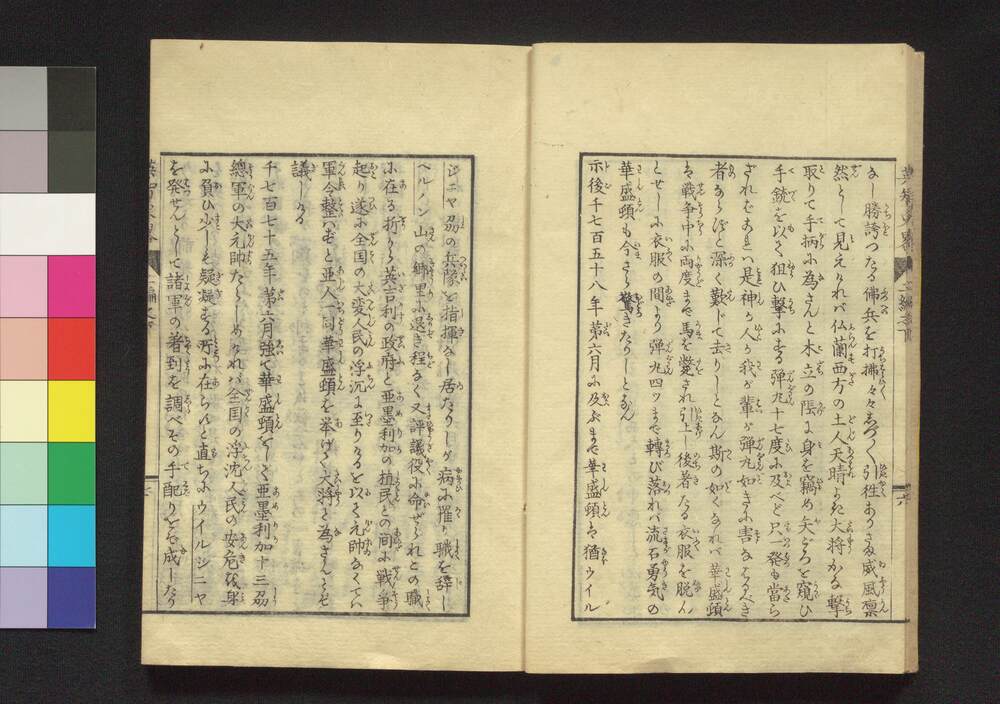 なし勝誇つたる佛兵を打拂々々志づ〱引徃ありさま威風凛
然として見えければ仏蘭西方の土人天晴よき大将かな撃
取りて手柄に為さんと木立の陰に身を竊め矢ごろを窺ひ
手銃を以て狙ひ撃にする弾丸十七度に及べど只一発も當ら
ざれば是神か人か我が輩が弾丸如きに害なはるべき
者ならずと深く歎じて去りしとなん斯の如くなれバ華盛頓
は戦争中に両度まで馬を斃され引上し後着たる衣服を脱ん
とせしに衣服の間より弾丸四ツまで轉び落れバ流石勇気の
華盛頓も今さら驚きたりしとなん
示後千七百五十八年第六月に及ぶまで華盛頓は猶ウイル
ジニヤ刕の兵隊を指揮なし居たりしが病に罹り職を辞し
ベルノン山の郷里に退き程なく又評議役に命ぜられとの職
に在る折から英吉利の政府と亜墨利加の植民との間に戦争
起り遂に全国の大変人民の浮沉に至りけるを以て元帥なくてハ
軍令整ハずと亜人一同華盛頓を挙げて大将と為さんとぞ
議しける
千七百七十五年第六月強て華盛頓をして亜墨利加十三刕
總軍の大元帥たらしめけれバ全国の浮沈人民の安危彼身
に負ひ少しも疑凝する所に在らずと直ちにウイルジニヤ
を発せんとして諸軍の着到を調べその手配りをぞ成したり